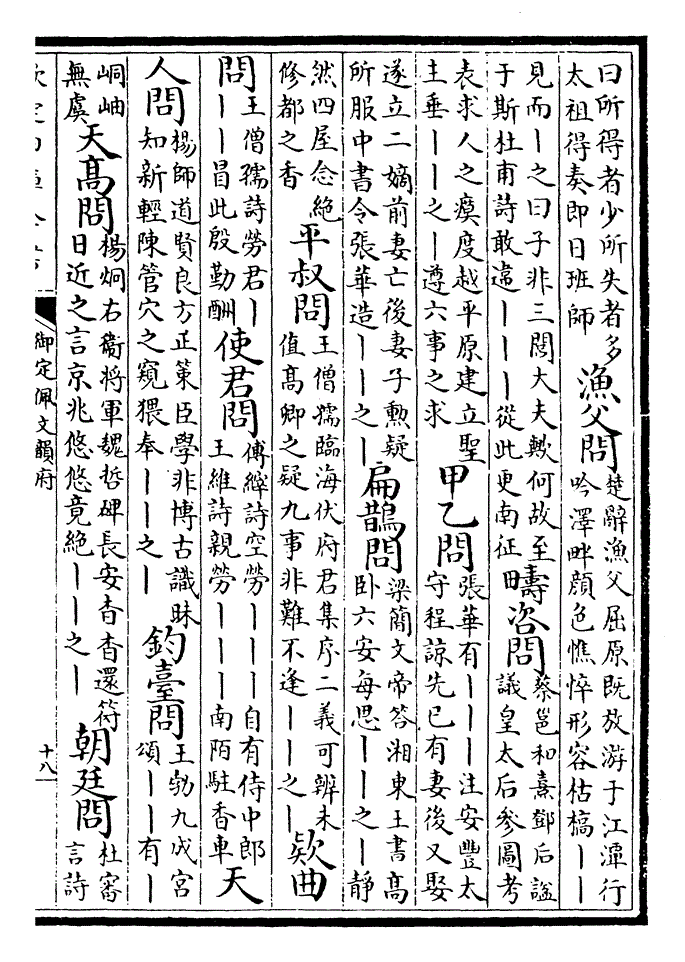 曰所得者少所失者多
太祖得奏即日班師
漁父問
楚辭漁父屈原既放游于江潭行
吟澤畔顔色憔悴形容枯槁丨丨
見而丨之曰子非三閭大夫歟何故至
于斯杜甫詩敢違丨丨丨從此更南征
疇咨問
蔡邕和熹鄧后謚
議皇太后參圖考
表求人之瘼度越平原建立聖
主垂丨丨之丨遵六事之求
甲乙問
張華有丨丨丨注安豐太
守程諒先已有妻後又娶
遂立二嫡前妻亡後妻子勲疑
所服中書令張華造丨丨之丨
扁鵲問
梁簡文帝答湘東王書高
卧六安每思丨丨之丨靜
然四屋念絶
修都之香
平叔問
王僧孺臨海伏府君集序二義可辨未
值高卿之疑九事非難不逢丨丨之丨
欵曲
問
王僧孺詩勞君丨
丨丨昌此殷勤酬
使君問
傅縡詩空勞丨丨丨自有侍中郎
王維詩親勞丨丨丨南陌駐香車
天
人問
楊師道賢良方正策臣學非博古識昧
知新輕陳管穴之窺猥奉丨丨之丨
鈞臺問
王勃九成宮
頌丨丨有丨
峒岫
無虞
天髙問
楊炯右衞將軍魏哲碑長安杳杳還符
日近之言京兆悠悠竟絶丨丨之丨
朝廷問
杜審
言詩
欽定四庫全書
御定佩文韻府
十八